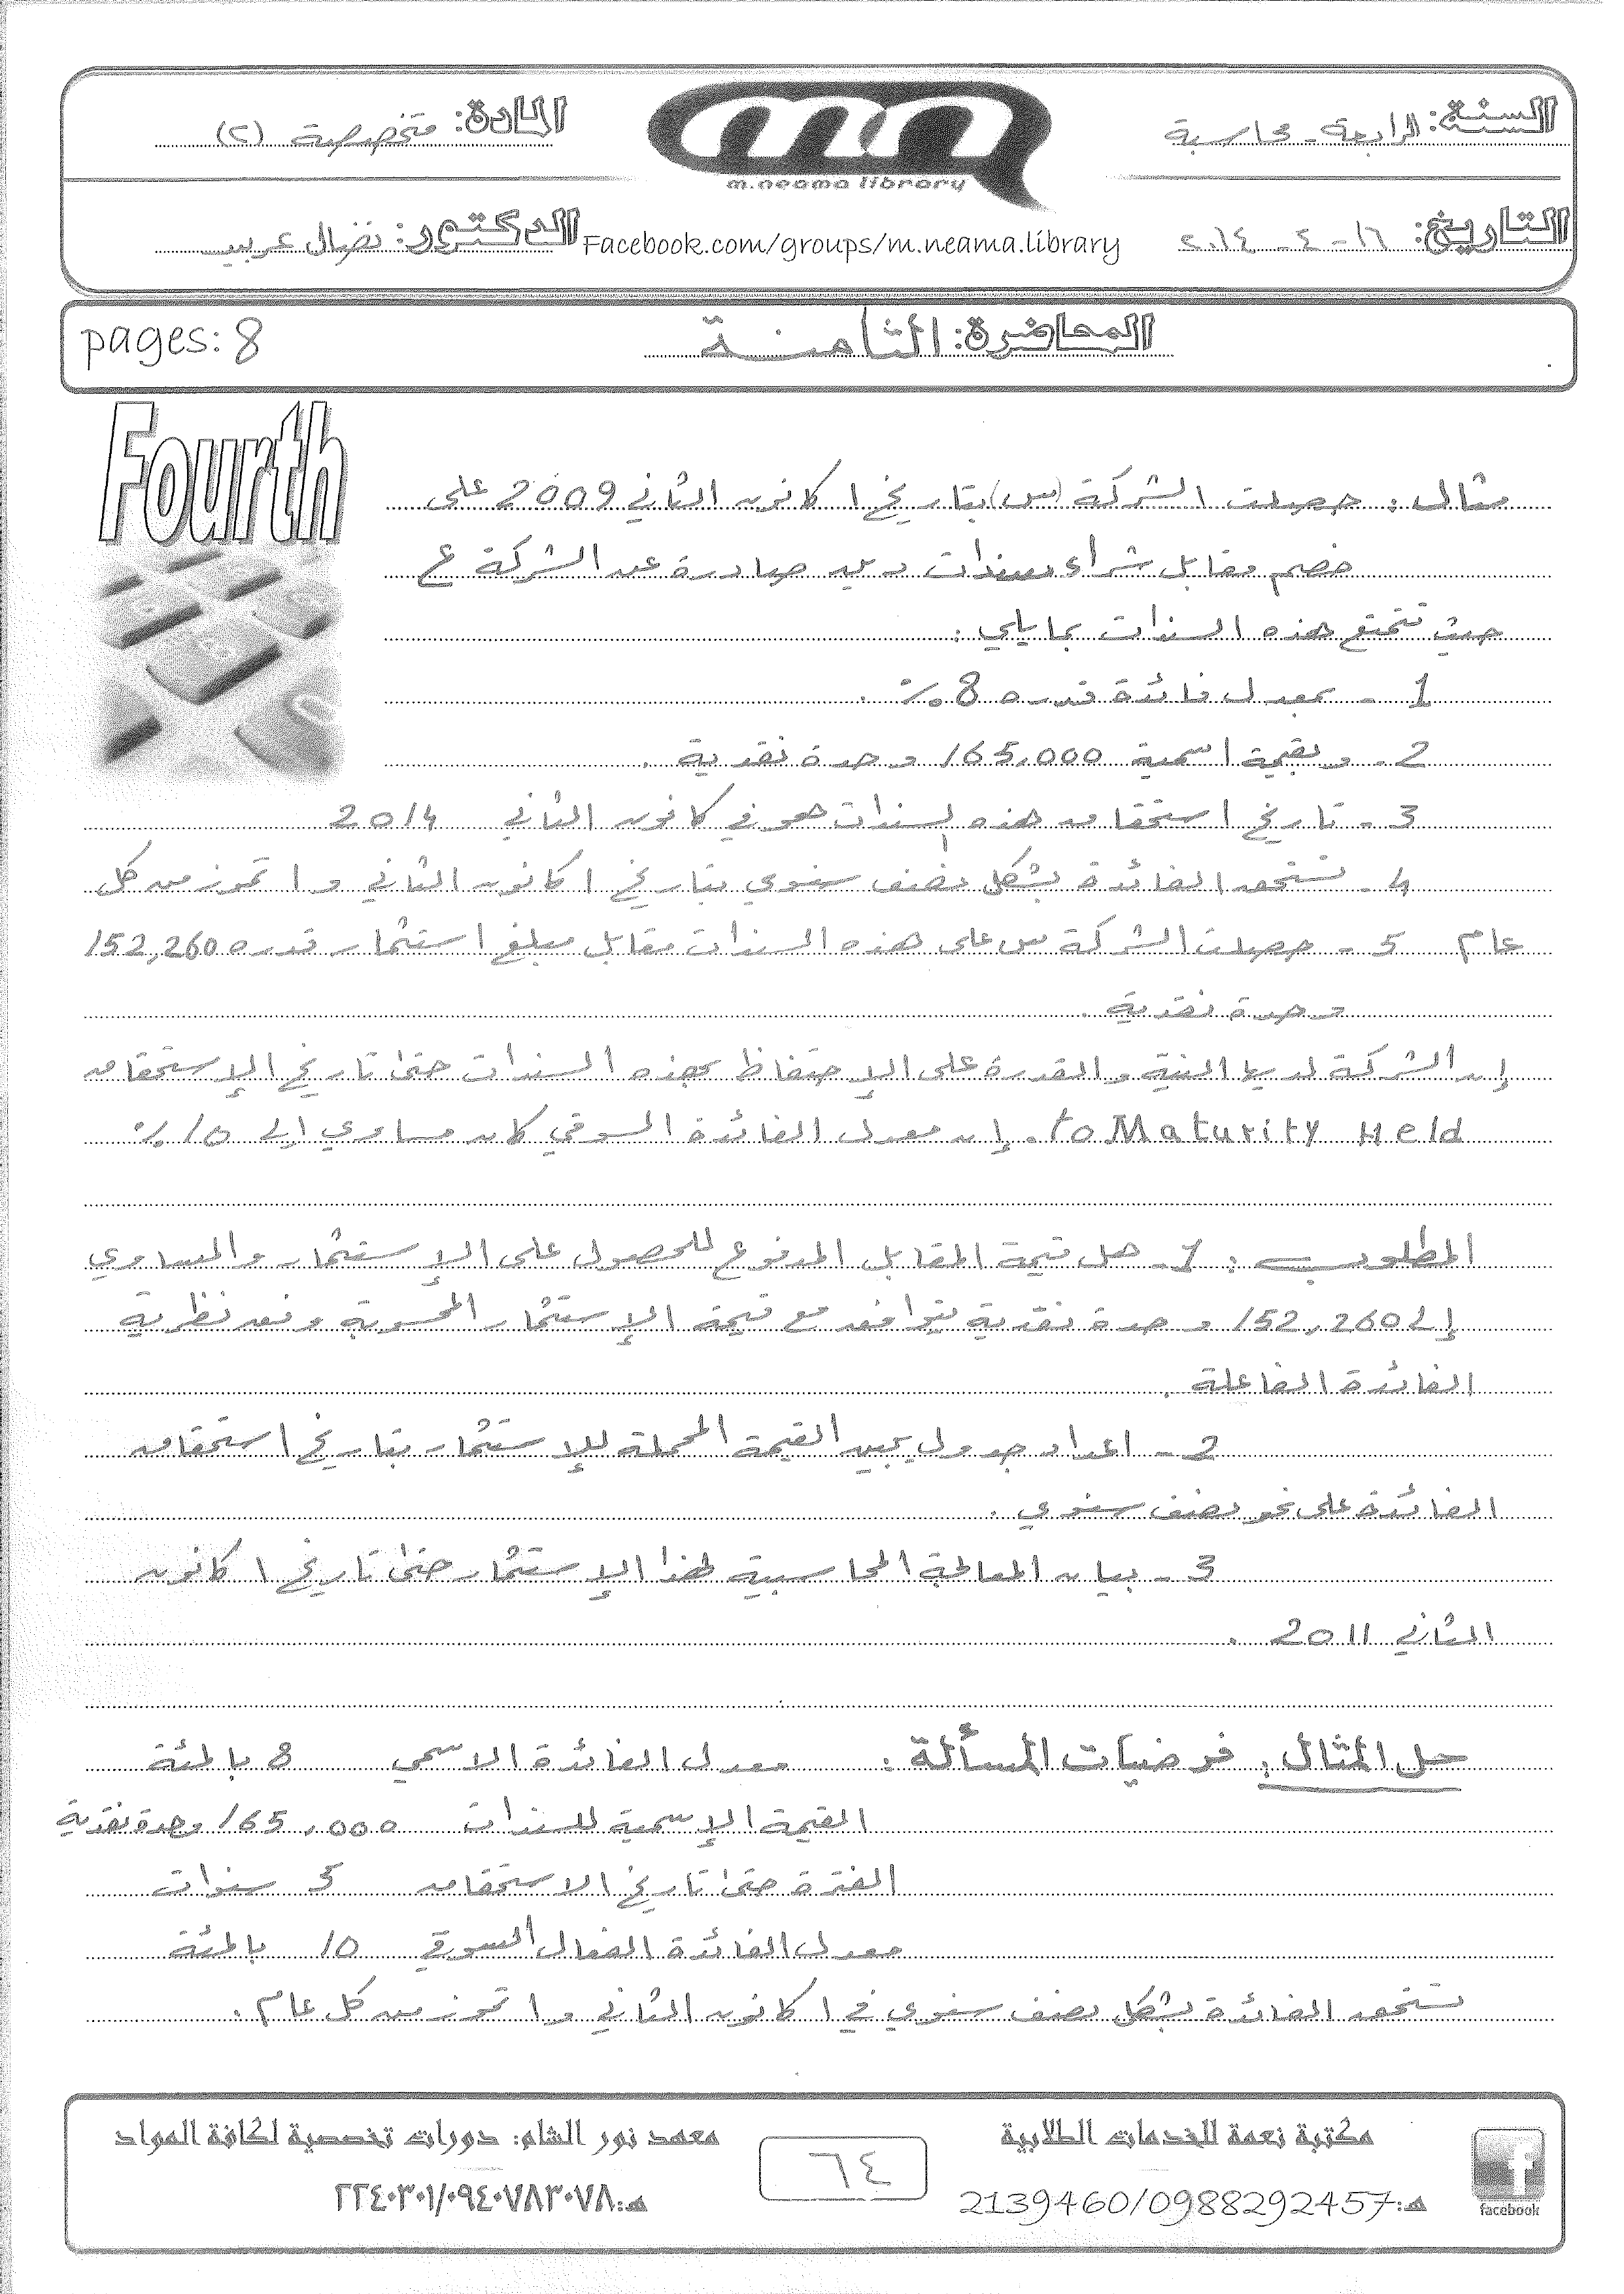 السنة: الرابعة - محاسبة
المادة: متخصصة (٢)
m.neama library
التاريخ: ١٦ - ٤ - ٢٠١٤
Facebook.com/groups/m.neama.library
الدكتور: نضال عربيد
المحاضرة: الثامنة
pages: 8
Fourth
مثال: حصلت الشركة (س) بتاريخ ١ كانون الثاني 2009 على
خصم مقابل شراء سندات دين صادرة عن الشركة ع
حيث تتمتع هذه السندات بما يلي:
1 - بمعدل فائدة قدره 8 %.
2 - وبقيمة اسمية 165,000 وحدة نقدية.
3 - تاريخ استحقاق هذه السندات هو في كانون الثاني 2014
4 - تستحق الفائدة بشكل نصف سنوي بتاريخ ١ كانون الثاني و ١ تموز من كل
عام 5 - حصلت الشركة س على هذه السندات مقابل مبلغ استثمار قدره 152,260
وحدة نقدية.
إن الشركة لديها النية والقدرة على الإحتفاظ بهذه السندات حتى تاريخ الإستحقاق
to Maturity Held. إن معدل الفائدة السوقي كان مساوي إلى 10 %
المطلوب: 1 - هل قيمة المقابل المدفوع للحصول على الإستثمار والمساوي
إلى 152,260 وحدة نقدية يتوافق مع قيمة الإستثمار المحسوبة وفق نظرية
الفائدة الفاعلة.
2 - اعداد جدول يبين القيمة المحملة للإستثمار بتاريخ استحقاق
الفائدة على نحو نصف سنوي.
3 - بيان المعالجة المحاسبية لهذا الإستثمار حتى تاريخ ١ كانون
الثاني 2011.
حل المثال: فرضيات المسألة: معدل الفائدة الاسمي 8 بالمئة
القيمة الإسمية للسندات 165,000 وحدة نقدية
الفترة حتى تاريخ الاستحقاق 5 سنوات
معدل الفائدة الفعال السوقي 10 بالمئة
تستحق الفائدة بشكل نصف سنوي في ١ كانون الثاني و ١ تموز من كل عام.
مكتبة نعمة للخدمات الطلابية
هـ: 2139460/0988292457
facebook
٦٤
معهد نور الشام: دورات تخصصية لكافة المواد
هـ: ٢٢٤٠٣٠١/٠٩٤٠٧٨٣٠٧٨